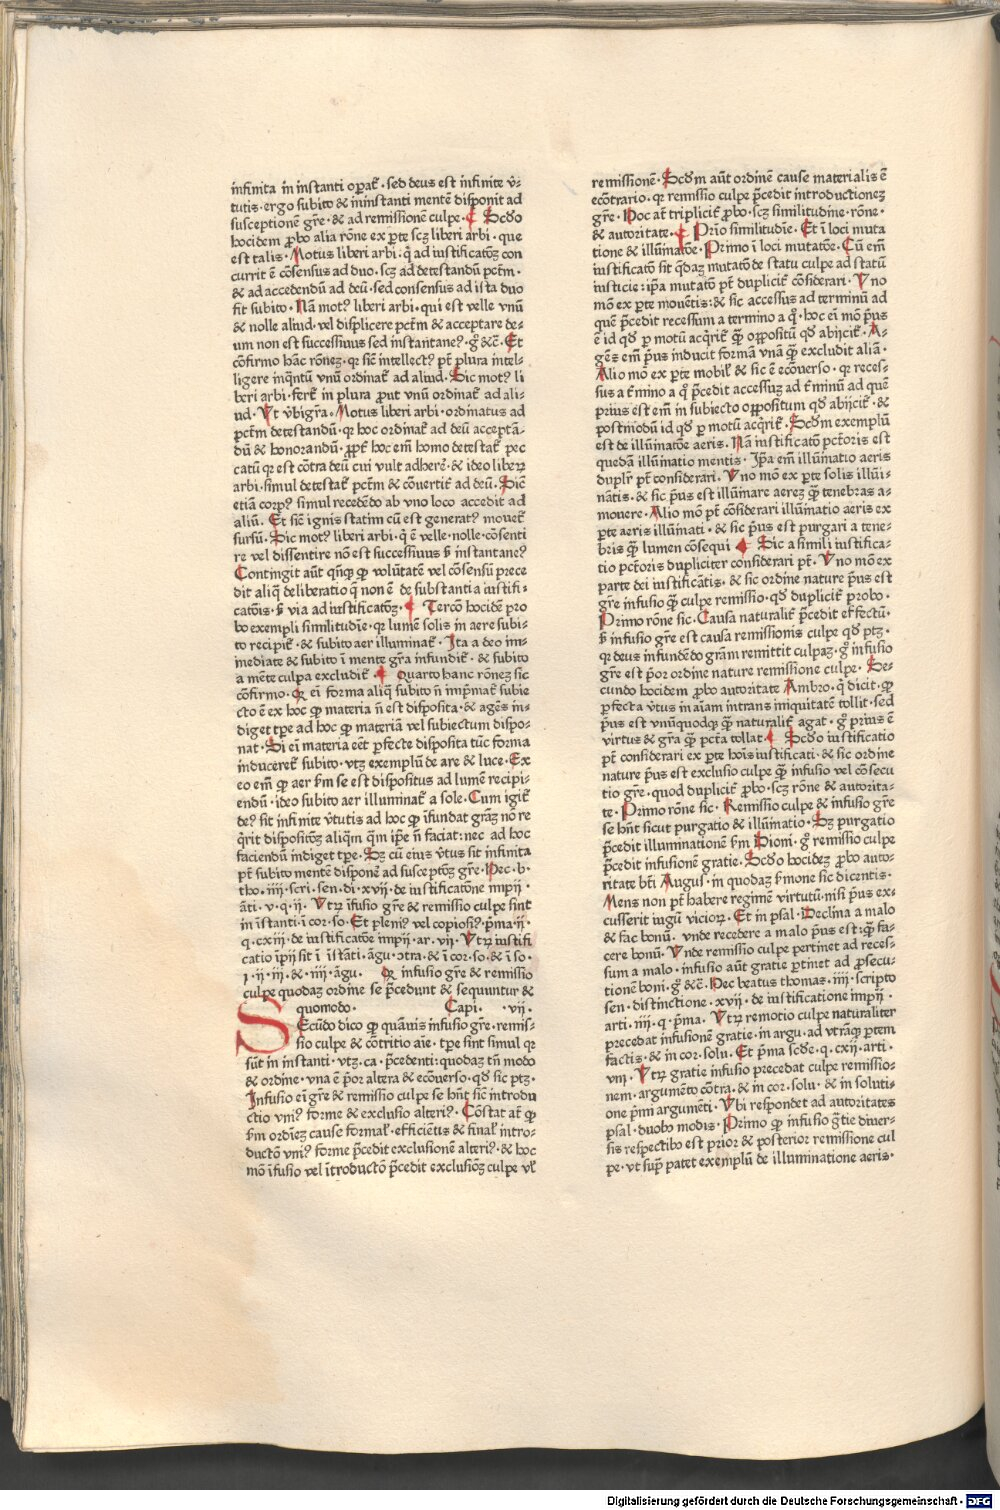 infinita in instanti oꝑat᷑ · sed deus est infinite v̄-
tutis · ergo subito & in instanti mentē disponit ad
susceptionē gr̄e · & ad remissionē culpe · ¶ Scd̄o
hocidem ꝓbo alia rōne ex ꝑte scꝫ liberi arbi · que
est talis · Motus liberi arbi · q̄ ad iustificatōꝫ con
currit ē cōsensus ad duo · scꝫ ad detestandū pctm̄ ·
& ad accedendū ad deū · sed consensus ad ista duo
fit subito · Nā motꝰ liberi arbi · qui est velle vnū
& nolle aliud · vel displicere pctm̄ & acceptare de-
um non est successiuus sed instantaneꝰ · gͦ &c̄ · Et
cōfirmo hāc rōneꝫ · qꝛ sic̄ intellectꝰ pt̄ plura intel-
ligere inq̄ntū vnū ordinat᷑ ad aliud · Sic motꝰ li
beri arbi · fert᷑ in plura ꝓut vnū ordinat᷑ ad ali-
ud · Vt v̄bigr̄a · Motus liberi arbi · ordinatus ad
pctm̄ detestandū · qꝛ hoc ordinat᷑ ad deū acceptā-
dū & honorandū · ꝓpt᷑ hoc em̄ homo detestat᷑ pec
catū qꝛ est cōtra deū cui vult adherē · & ideo liberꝫ
arbi · simul detestat᷑ pctm̄ & cōuertit᷑ ad deū · Sic̄
etiā corpꝰ simul recedēdo ab vno loco accedit ad
aliū · Et sic̄ ignis statim cū est generatꝰ mouet᷑
sursū · Sic motꝰ liberi arbi · q̄ ē velle · nolle · cōsenti
re vel dissentire nō est successiuus s̄ instantaneꝰ
Contingit aūt qn̄qꝫ ꝙ volūtatē vel cōsensū prece
dit aliq̄ deliberatio q̄ non ē de substantia iustifi-
catōis · s̄ via ad iustificatōꝫ · ¶ Tercō hocidē pro
bo exempli similitudīe · qꝛ lumē solis in aere subi-
to recipit᷑ · & subito aer illuminat᷑ · Ita a deo im-
mediate & subito ī mente gr̄a infundit᷑ · & subito
a mēte culpa excludit᷑ · ¶ Quarto hanc rōneꝫ sic
cōfirmo · Qꝛ ei̅ forma aliq̄ subito n̄ imp̄mat᷑ subie
cto ē ex hoc ꝙ materia n̄ est disposita · & agēs in-
diget tp̄e ad hoc ꝙ materiā vel subiectum dispo-
nat · Si ei̅ materia eēt ꝑfecte disposita tūc forma
induceret᷑ subito · vtꝫ exemplū de are & luce · Ex
eo em̄ ꝙ aer s̄m se est dispositus ad lumē recipi-
endū · ideo subito aer illuminat᷑ a sole · Cum igit᷑
deꝰ sit infinite v̄tutis ad hoc ꝙ īfundat grāꝫ nō re
q̄rit dispositōꝫ aliqm̄ qm̄ ip̄e n̄ faciat : nec ad hoc
faciendū indiget tp̄e · Sꝫ cū eius v̄tus sit infinita
pt̄ subito mentē disponē ad susceptōꝫ gr̄e · Hec · b ·
tho · iiii · scri · sen · di · xvii · de iustificatōne impii ·
āti · v · q · ii · Vtꝝ īfusio gr̄e & remissio culpe sint
in īstanti · ī cor · so · Et pleniꝰ vel copiosiꝰ · p̄ma · ii ·
q · cxiii · de iustificatōe impii · ar · vii · Vtꝝ iustifi
catio īpii sit ī īstāti · āgu · ꝯtra · & ī cor · so · & ī so ·
i · ii · iii · & · iiii · āgu · Qꝛ infusio gr̄e & remissio
culpe quodaꝫ ordine se p̄cedunt & sequuntur &
quomodo · Capi. · vii ·
SEcūdo dico ꝙ quāuis infusio gr̄e · remis-
sio culpe & cōtritio aīe · tp̄e sint simul qꝛ
sūt in instanti · vtꝫ · ca · p̄cedenti : quodaꝫ tn̄ modo
& ordine · vna ē p̄or altera & ecōuerso · qd̄ sic ptꝫ ·
Infusio ei̅ gr̄e & remissio culpe se hn̄t sic̄ introdu
ctio vniꝰ forme & exclusio alteriꝰ · Cōstat at̄ ꝙ
s̄m ordīeꝫ cause formal᷑ · efficiētis & final᷑ intro-
ductō vniꝰ forme p̄cedit exclusionē alteriꝰ · & hoc
mō īfusio vel ītroductō p̄cedit exclusiōꝫ culpe vl᷑
remissionē · Scd̄m aūt ordinē cause materialis ē
ecōtrario · qꝛ remissio culpe p̄cedit introductioneꝫ
gr̄e · Hoc at̄ triplicit᷑ ꝓbo · scꝫ similitudine · rōne ·
& autoritate · ¶ Prīo similitudīe · Et ī loci muta
tione & illūiatōe · Primo ī loci mutatōe · Cū em̄
iustificatō sit q̄daꝫ mutatō de statu culpe ad statū
iusticie : ip̄a mutatō pt̄ duplicit᷑ cōsiderari · Vno
mō ex ꝑte mouētis : & sic accessus ad terminū ad
quē p̄cedit recessum a termino a qͦ · hoc ei̅ mō p̄us
ē id qd̄ ꝑ motū acq̄rit᷑ ꝙ̄ oppositū qd̄ abijcit᷑ · A-
gēs em̄ p̄us inducit formā vnā ꝙ̄ excludit aliā ·
Alio mō ex ꝑte mobil᷑ & sic ē ecōuerso · qꝛ reces-
sus a t᷑mino a qͦ p̄cedit accessuꝫ ad t᷑minū ad quē
prius est em̄ in subiecto oppositum qd̄ abijcit᷑ · &
postmōdū id qd̄ ꝑ motū acq̄rit᷑ · Scd̄m exemplū
est de illūinatōe aeris · Nā iustificatō pctōris est
quedā illūinatio mentis · Ip̄a em̄ illūinatio aeris
duplr̄ pt̄ considerari · Vno mō ex ꝑte solis illūi-
nātis · & sic p̄us est illūinare aereꝫ ꝙ̄ tenebras a-
mouere · Alio mō pt̄ cōsiderari illūinatio aeris ex
ꝑte aeris illūinati · & sic p̄us est purgari a tene-
bris ꝙ̄ lumen cōsequi ¶ Sic a simili iustifica-
tio pctōris dupliciter considerari pt̄ · Vno mō ex
parte dei iustificātis · & sic ordine nature p̄us est
gr̄e infusio ꝙ̄ culpe remissio · qd̄ duplicit᷑ probo ·
Primo rōne sic · Causa naturalit᷑ p̄cedit effectū ·
s̄ infusio gr̄e est causa remissionis culpe qd̄ ptꝫ ·
qꝛ deus infundēdo grām remittit culpaꝫ · gͦ infusio
gr̄e est p̄or ordine nature remissione culpe · Se-
cundo hocidem ꝓbo autoritate Ambro · q̄ dicit · ꝙ
ꝑfecta v̄tus in aīam intrans iniquitatē tollit · sed
p̄us est vnūquodqꝫ ꝙ̄ naturalit᷑ agat · gͦ prius ē
virtus & gr̄a ꝙ̄ pctā tollat ¶ Scd̄o iustificatio
pt̄ considerari ex ꝑte hoīs iustificati · & sic ordine
nature p̄us est exclusio culpe ꝙ̄ infusio vel cōsecu
tio gr̄e · quod duplicit᷑ ꝓbo · scꝫ rōne & autorita-
te · Primo rōne sic · Remissio culpe & infusio gr̄e
se hn̄t sicut purgatio & illūinatio · Sꝫ purgatio
p̄cedit illuminationē s̄m Dioni · gͦ remissio culpe
p̄cedit infusionē gratie · Scd̄o hocideꝫ ꝓbo auto-
ritate bt̄i Augus · in quodaꝫ s̄mone sic dicentis ·
Mens non pt̄ habere regimē virtutū · nisi p̄us ex-
cusserit iugū vicioꝝ · Et in psal · Declina a malo
& fac bonū · vnde recedere a malo p̄us est : ꝙ̄ fa-
cere bonū · Vnde remissio culpe pertinet ad reces-
sum a malo · infusio aūt gratie ꝑtinet ad ꝓsecu-
tionē boni · gͦ &c̄ · Hec beatus thomas · iiii · scripto
sen · distinctione · xvii · de iustificatione impii ·
arti · iiii · q · p̄ma · Vtꝝ remotio culpe naturaliter
precedat infusionē gratie · in argu · ad vtrāqꝫ ꝑtem
factis · & in cor · solu · Et p̄ma scd̄e · q · cxii · arti ·
viii · Vtꝝ gratie infusio precedat culpe remissio-
nem · argumēto cōtra · & in cor · solu · & in soluti-
one p̄mi argumēti · Vbi respondet ad autoritates
psal · duobꝰ modis · Primo ꝙ infusio gr̄tie diuer-
sis respectibꝰ est prior & posterior remissione cul
pe · vt supͣ patet exemplū de illuminatione aeris ·
Digitalisierung gefördert durch die Deutsche Forschungsgemeinschaft · DFG